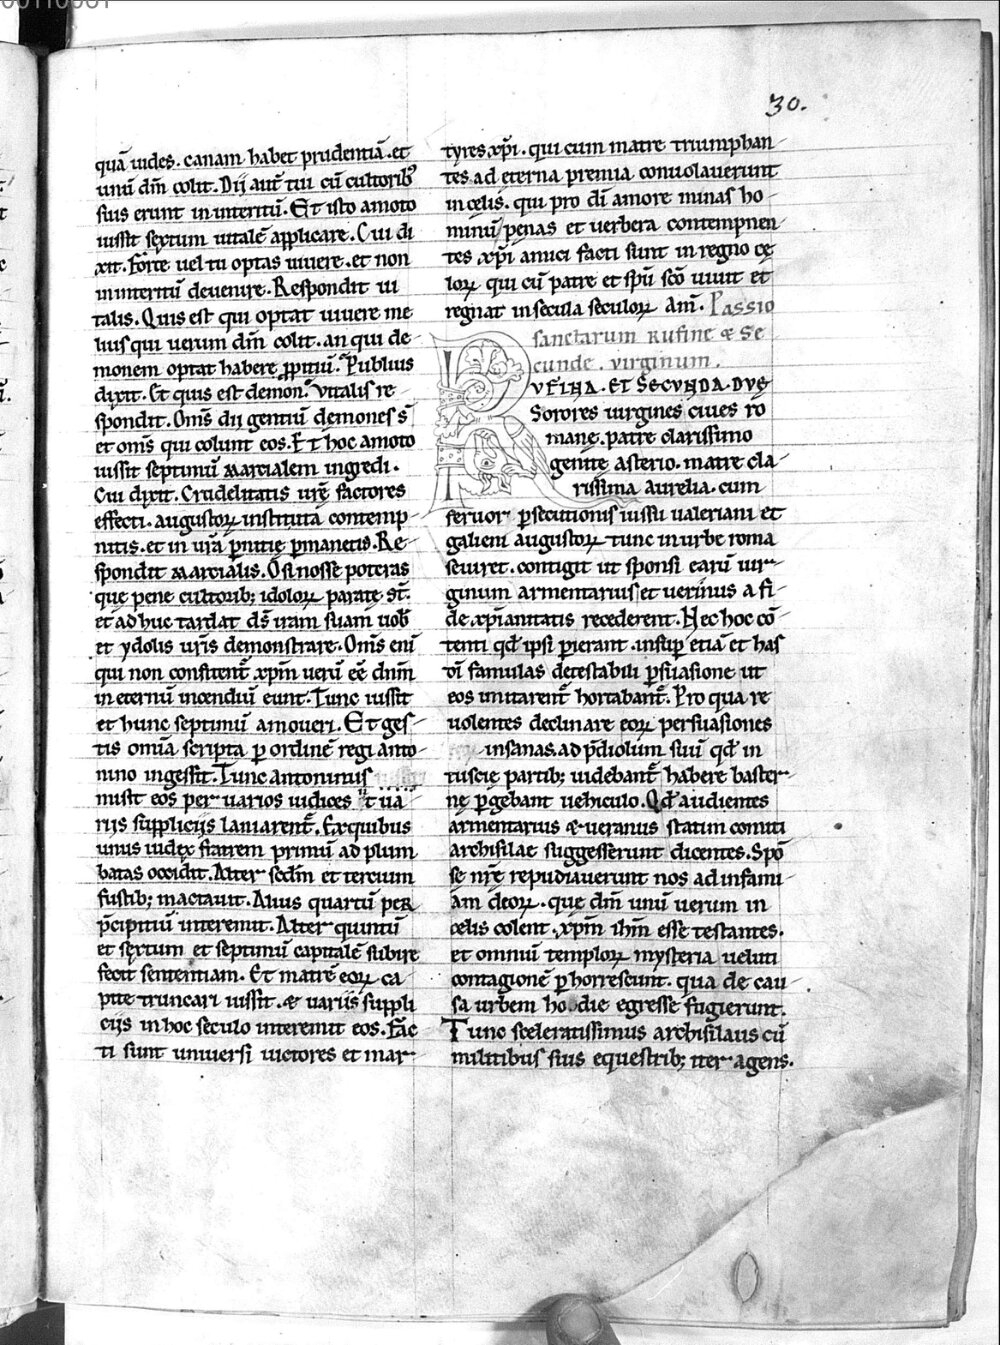 30.
quā uides. canam habet prudentiā. et
unū dm̄ colit. Dij aut̄ tui cū cultorib;
suis erunt in interitū. Et isto amoto
iussit sextum uitalē applicare. Cui di
xit. Forte uel tu optas uiuere. et non
in interitū deuenire. Respondit ui
talis. Quis est qui optat uiuere me
lius qui uerum dm̄ colit. an qui de
monem optat habere ꝓpitiū. Publius
dixit. Et quis est demon. Vitalis re
spondit. Om̄s dii gentiū demones s̄
et om̄s qui colunt eos. Et hoc amoto
iussit septimū marcialem ingredi.
Cui dixit. Crudelitatis ur̄ę factores
effecti. augustoꝝ instituta contemp
nitis. et in ur̄a ꝑnitię ꝑmanetis. Re
spondit marcialis. O si nosse poteras
que pene cultorib; idoloꝝ paratę st̄.
et adhuc tardat ds̄ iram suam uob̄
et ydolis ur̄is demonstrare. Om̄s eni
qui non confitent̄ xp̄m uerū eē dn̄m
in eternū incendiū eunt. Tunc iussit
et hunc septimū amoueri. Et ges
tis omīa scripta ꝑ ordinē regi anto
nino ingessit. Tunc antoninus
misit eos per uarios iudices ut ua
riis suppliciis laniarent̄. Ex quibus
unus iudex fratrem primū ad plum
batas occidit. Alter scdm̄ et tercium
fustib; mactauit. Alius quartū per
p̄cipitiū interemit. Alter quintū
et sextum et septimū capitalē subire
fecit sententiam. Et matrē eoꝝ ca
pite truncari iussit. & uariis suppli
ciis in hoc seculo interemit eos. Fac
ti sunt uniuersi uictores et mar
tyres xp̄i. qui cum matre triumphan
tes ad eterna premia conuolauerunt
in cęlis. qui pro dī amore minas ho
minū penas et uerbera contempnen
tes xp̄i amici facti sunt in regno cę
loꝝ qui cū patre et spū scō uiuit et
regnat in secula seculoꝝ am̄. Passio
sanctarum Rufine & Se
cunde. virginum.
RVFINA. ET SECVNDA. DVĘ
Sorores uirgines ciues ro
manę. patre clarissimo
gente asterio. matre cla
rissima aurelia. cum
feruor ꝑsecutionis iussu ualeriani et
galieni augustoꝝ tunc in urbe roma
seuiret. contigit ut sponsi earū uir
ginum armentarius et uerinus a fi
de xp̄ianitatis recederent. Nec hoc cō
tenti qd̄ ipsi ꝑierant. insuꝑ etiā et has
dī famulas detestabili ꝑsuasione ut
eos imitarent̄ hortabant̄. Pro qua re
uolentes declinare eoꝝ persuasiones
insanas. ad p̄diolum suū qd̄ in
tuscię partib; uidebant̄ habere baster
nę ꝑgebant uehiculo. Qd̄ audientes
armentarius & ueranus statim comiti
archisilae suggesserunt dicentes. Spō
se nr̄ę repudiauerunt nos ad infami
ām deoꝝ. que dm̄ unū uerum in
cęlis colent. xp̄m ih̄m esse testantes.
et omniū temploꝝ mysteria ueluti
contagionē ꝑhorrescunt. qua de cau
sa urbem hodie egresse fugierunt.
Tunc sceleratissimus archisilaus cū
militibus suis equestrib; iter agens.